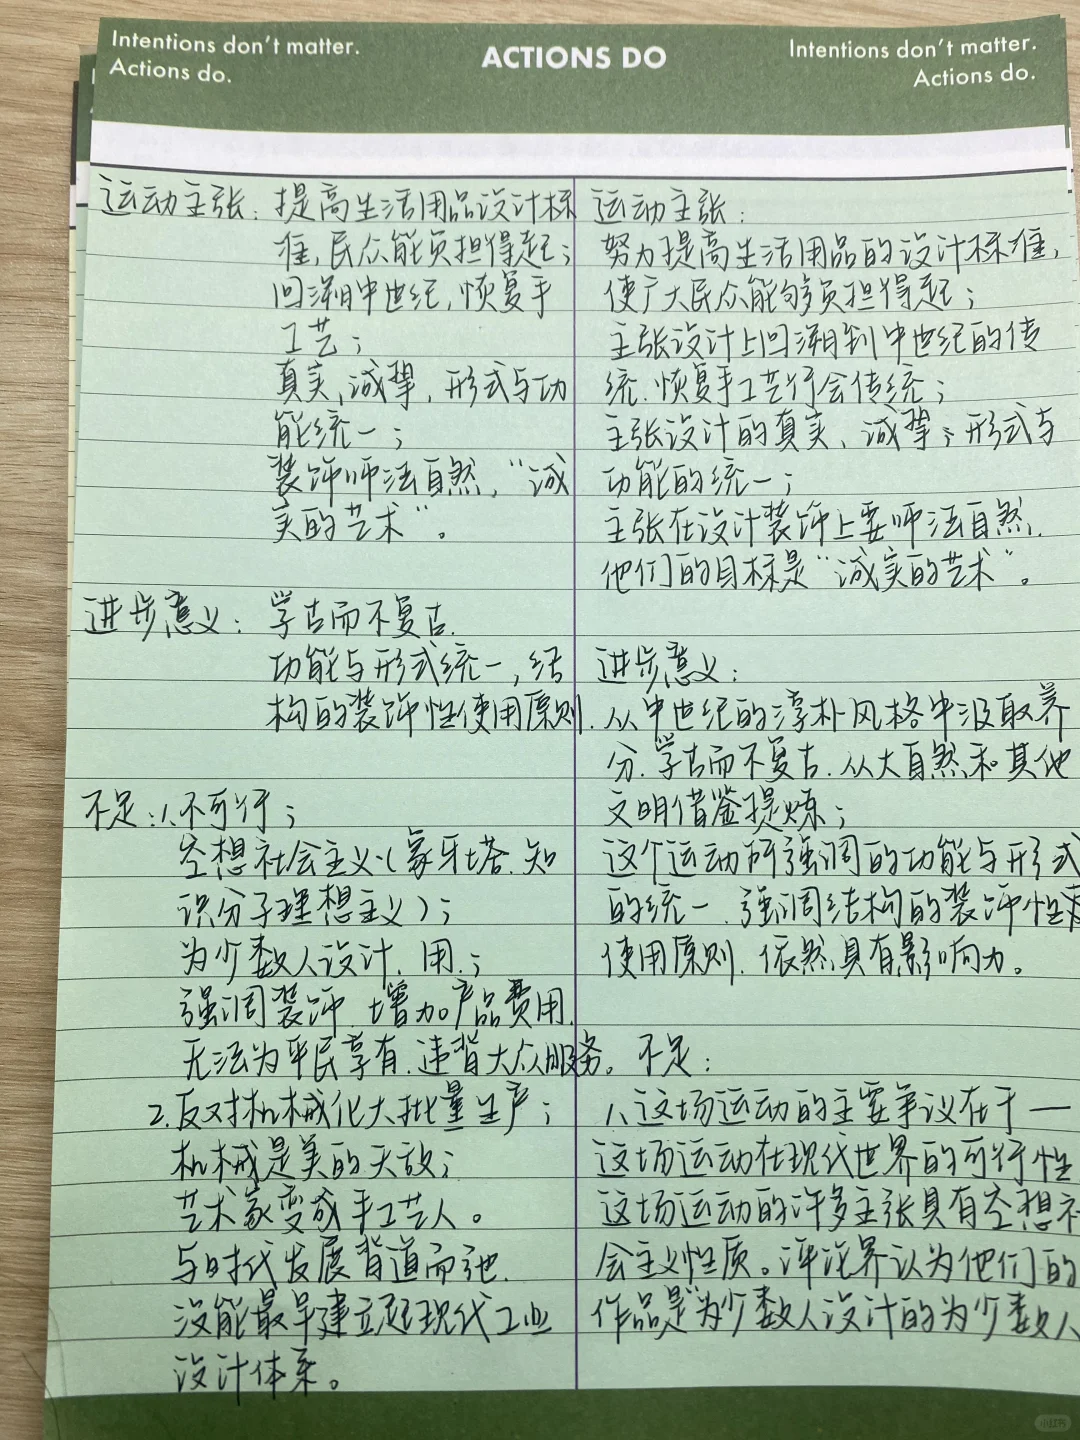 Intentions don't matter.
Actions do.
ACTIONS DO
Intentions don't matter.
Actions do.
运动主张：提高生活用品设计标
准，民众能负担得起；
回溯中世纪，恢复手
工艺；
真实，诚挚，形式与功
能统一；
装饰师法自然，“诚
实的艺术”。
进步意义：学古而不复古.
功能与形式统一，结
构的装饰性使用原则.
不足：1、不可行；
空想社会主义（象牙塔.知
识分子理想主义）；
为少数人设计、用.；
强调装饰，增加产品费用.
无法为平民享有.违背大众服务。
2.反对机械化大批量生产；
机械是美的天敌；
艺术家变成手工艺人。
与时代发展背道而驰.
没能最早建立起现代工业
设计体系。
运动主张：
努力提高生活用品的设计标准，
使广大民众能够负担得起；
主张设计上回溯到中世纪的传
统.恢复手工艺行会传统；
主张设计的真实、诚挚；形式与
功能的统一；
主张在设计装饰上要师法自然.
他们的目标是“诚实的艺术”。
进步意义：
从中世纪的淳朴风格中汲取养
分.学古而不复古.从大自然和其他
文明借鉴提炼；
这个运动所强调的功能与形式
的统一.强调结构的装饰性
使用原则.依然具有影响力。
不足：
1、这场运动的主要争议在于一
这场运动在现代世界的可行性
这场运动的许多主张具有空想社
会主义性质。评论界认为他们的
作品是“为少数人设计的为少数人
小红书